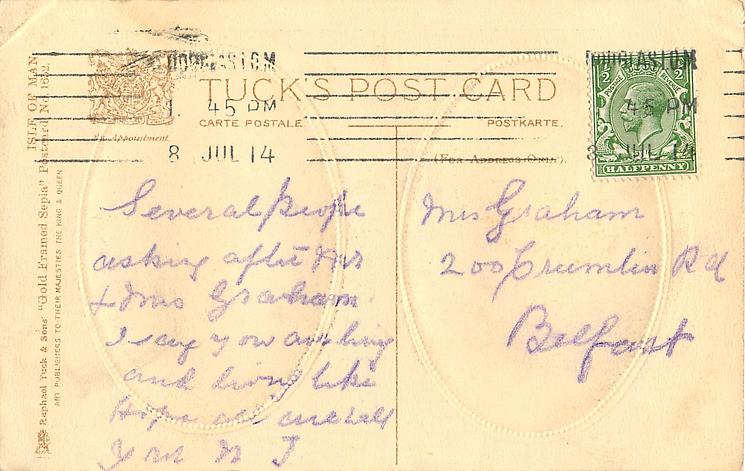 DOUGLAS I.O.M
1. 45 PM
8 JUL 14
DOUGLAS I.O.M
45 PM
8 JUL 14
By Appointment
TUCK'S POST CARD
CARTE POSTALE.
POSTKARTE.
(FOR ADDRESS ONLY).
POSTAGE REVENUE
½ ½
HALFPENNY
ISLE OF MAN
Raphael Tuck & Sons' "Gold Framed Sepia" Postcard No. 1652.
ART PUBLISHERS TO THEIR MAJESTIES THE KING & QUEEN
Several people
asking after Mr
& Mrs Graham.
I say you are
and like
Hope all are well
Mrs Graham
200 Crumlin Rd
Belfast